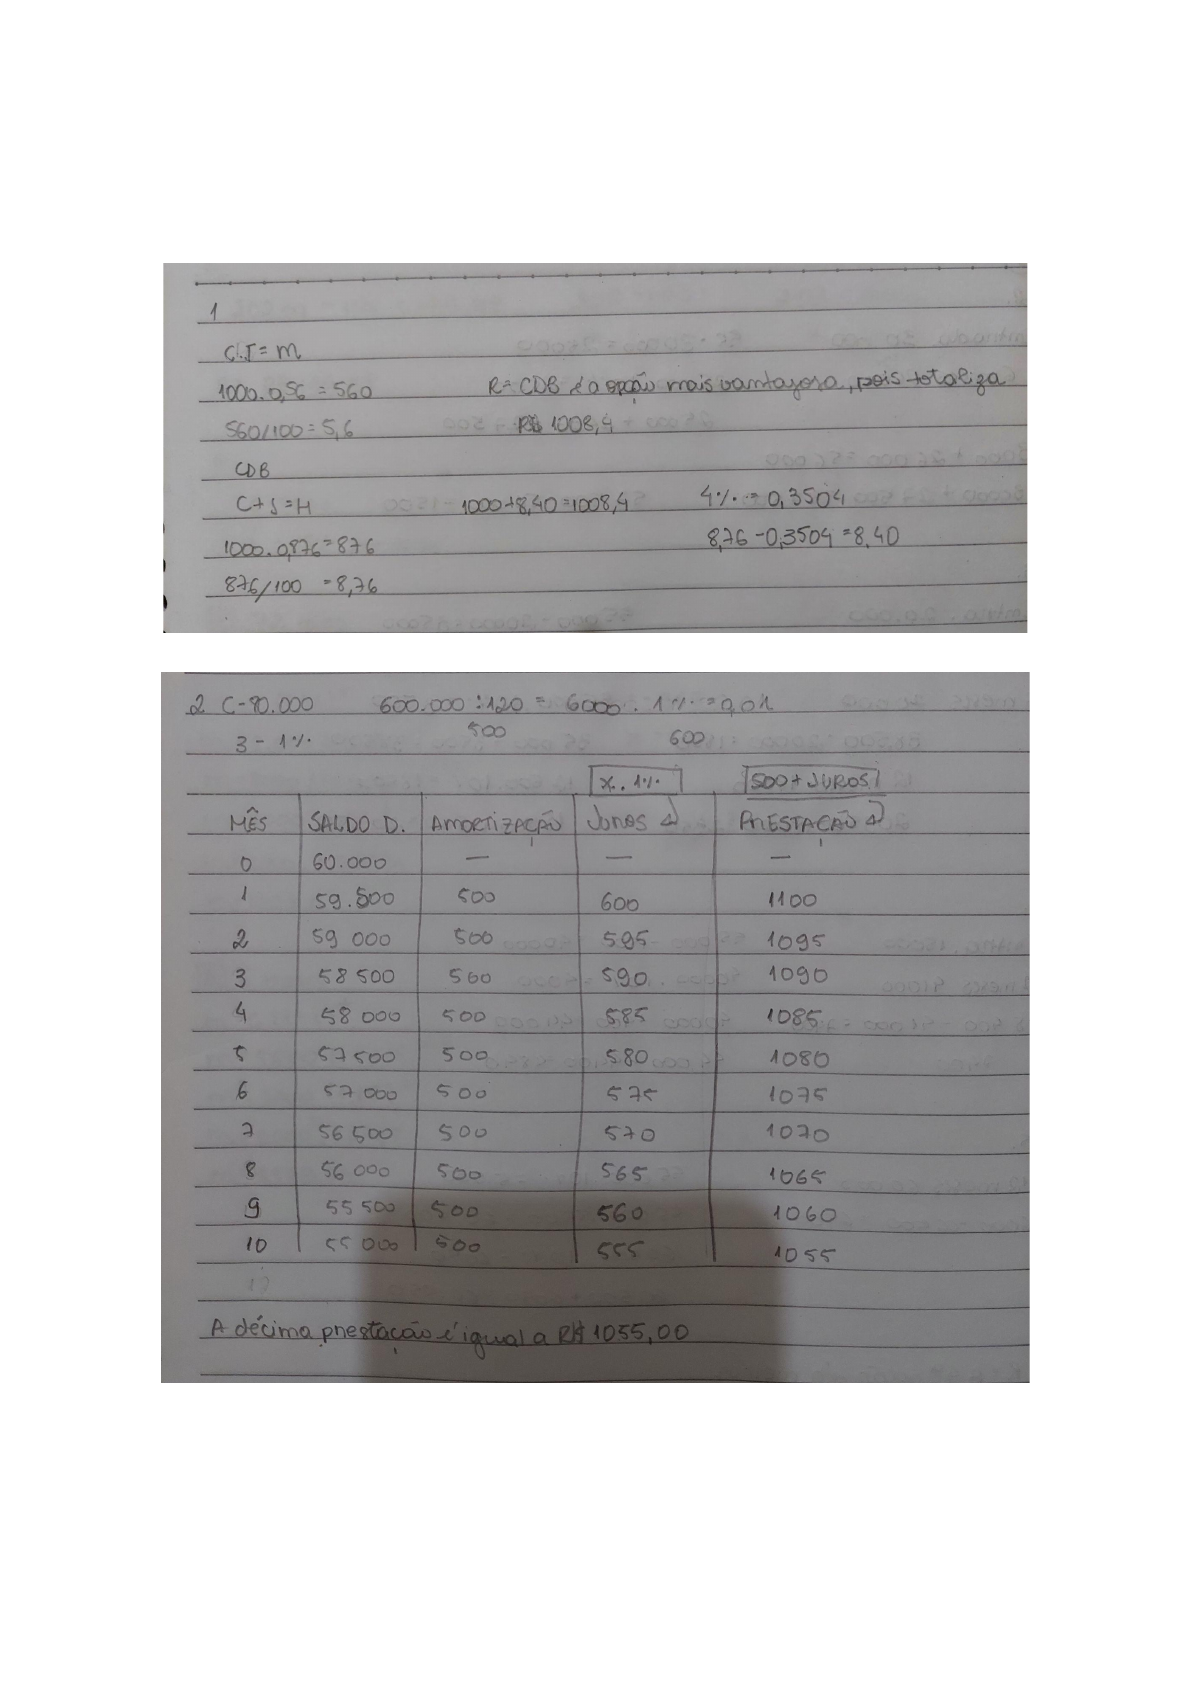 1
C.I = M
1000.0,56 = 560 R= CDB é a opção mais vantajosa, pois totaliza
560/100 = 5,6 R$ 1008,4
CDB
C+J = M 1000+8,40=1008,4 4% = 0,3504
1000.0,876 = 876 8,76-0,3504 = 8,40
876/100 = 8,76
2 600.000 : 120 = 6000 . 1% = 0,01
3 - 1% 500 600
x . 1% 500 + JUROS
MÊS SALDO D. AMORTIZAÇÃO JUROS PRESTAÇÃO
0 60.000 — — —
1 59.500 500 600 1100
2 59 000 500 595 1095
3 58 500 500 590 1090
4 58 000 500 585 1085
5 57 500 500 580 1080
6 57 000 500 575 1075
7 56 500 500 570 1070
8 56 000 500 565 1065
9 55 500 500 560 1060
10 55 000 500 555 1055
A décima prestação é igual a R$ 1055,00